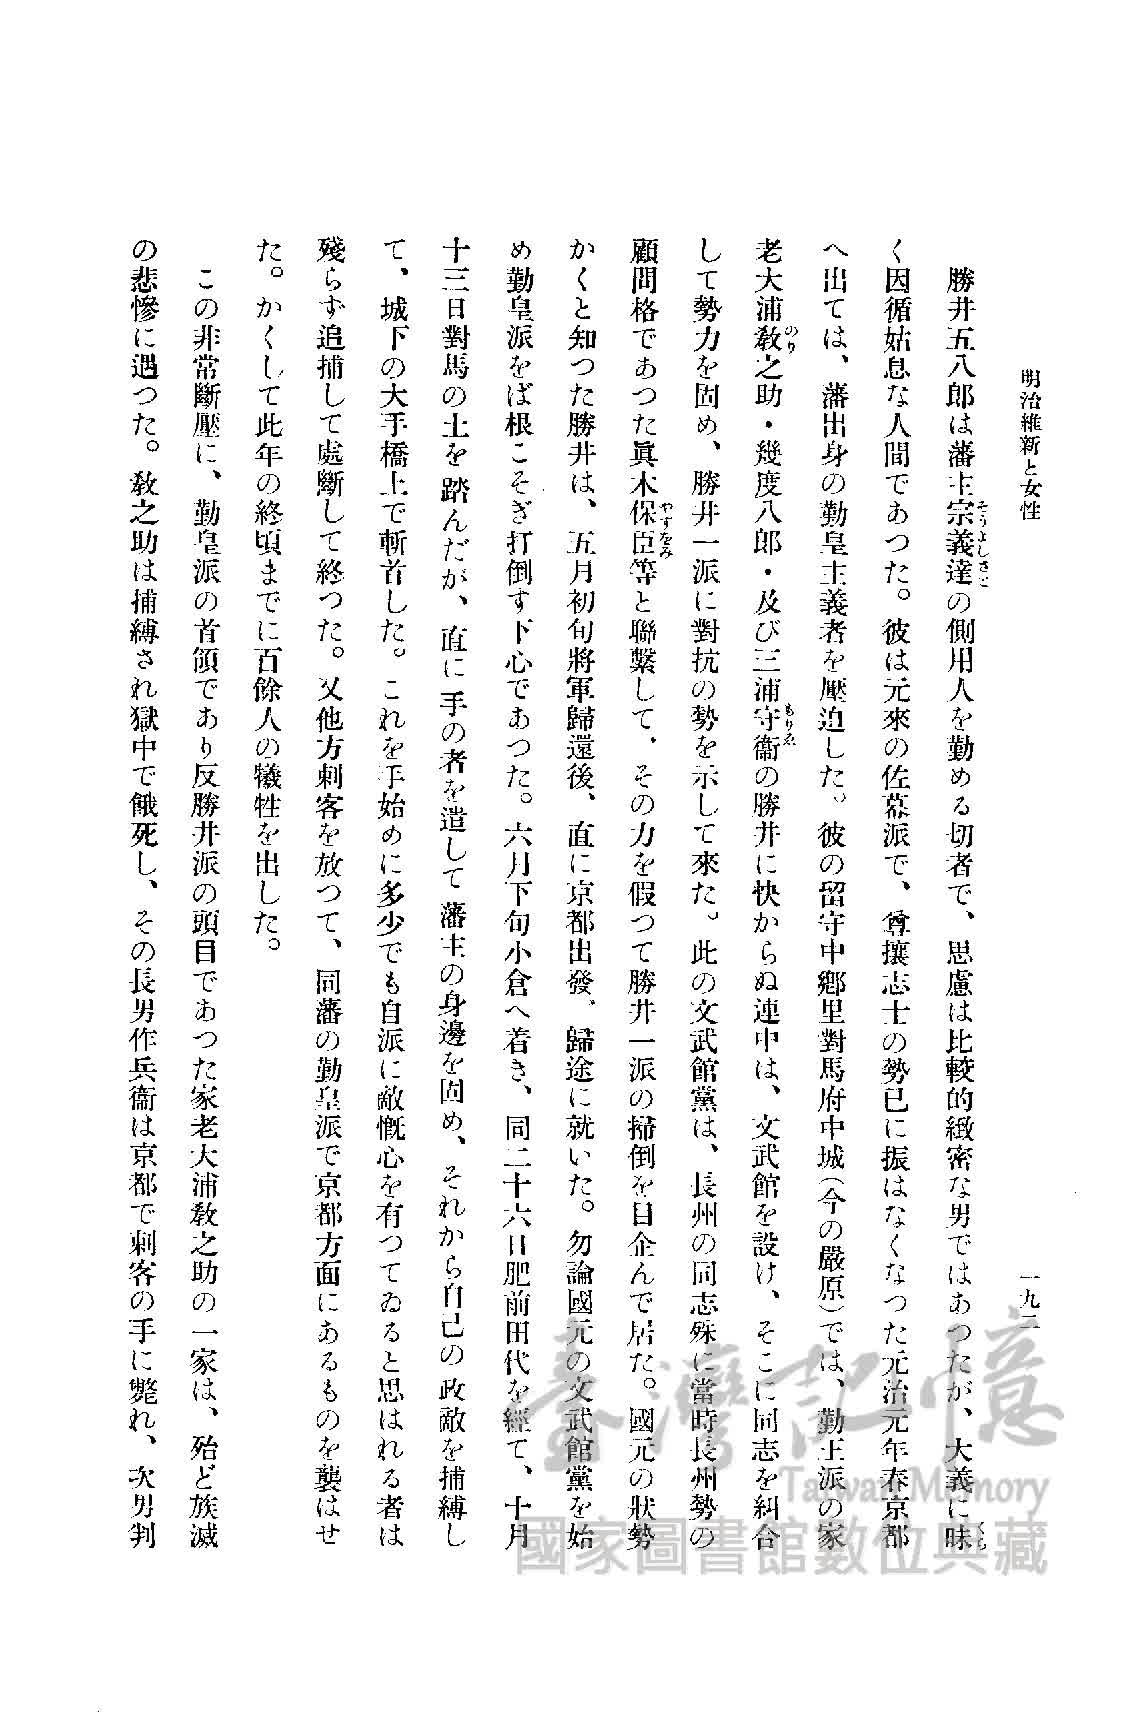 明治維新と女性
一九二
勝井五八郎は藩主宗義達の側用人を勤める切者で、思慮は比較的緻密な男ではあつたが、大義に昧
く因循姑息な人間であつた。彼は元來の佐幕派で、尊攘志士の勢已に振はなくなつた元治元年春京都
へ出ては、藩出身の勤皇主義者を壓迫した。彼の留守中鄕里對馬府中城(今の嚴原)では、勤王派の家
老大浦敎之助・幾度八郎・及び三浦守衞の勝井に快からぬ連中は、文武館を設け、そこに同志を糾合
して勢力を固め、勝井一派に對抗の勢を示して來た。此の文武館黨は、長州の同志殊に當時長州勢の
顧問格であつた眞木保臣等と聯繫して、その力を假つて勝井一派の掃倒を目企んで居た。國元の狀勢
かくと知つた勝井は、五月初旬將軍歸還後、直に京都出發、歸途に就いた。勿論國元の文武館黨を始
め勤皇派をば根こそぎ打倒す下心であつた。六月下旬小倉へ着き、同二十六日肥前田代を經て、十月
十三日對馬の土を踏んだが、直に手の者を造して藩主の身邊を固め、それから自己の政敵を捕縛し
て、城下の大手橋上で斬首した。これを手始めに多少でも自派に敵慨心を有つてゐると思はれる者は
殘らず追捕して處斷して終つた。又他方刺客を放つて、同藩の勤皇派で京都方面にあるものを襲はせ
た。かくして此年の終頃までに百餘人の犧牲を出した。
この非常斷壓に、勤皇派の首領であり反勝井派の頭目であつた家老大浦敎之助の一家は、殆ど族滅
の悲慘に遇つた。敎之助は捕縛され獄中で餓死し、その長男作兵衞は京都で刺客の手に斃れ、次男判
そうよしさと
くら
のり
もりゑ
やすをみ
臺灣記憶
Taiwan Memory
國家圖書館數位典藏